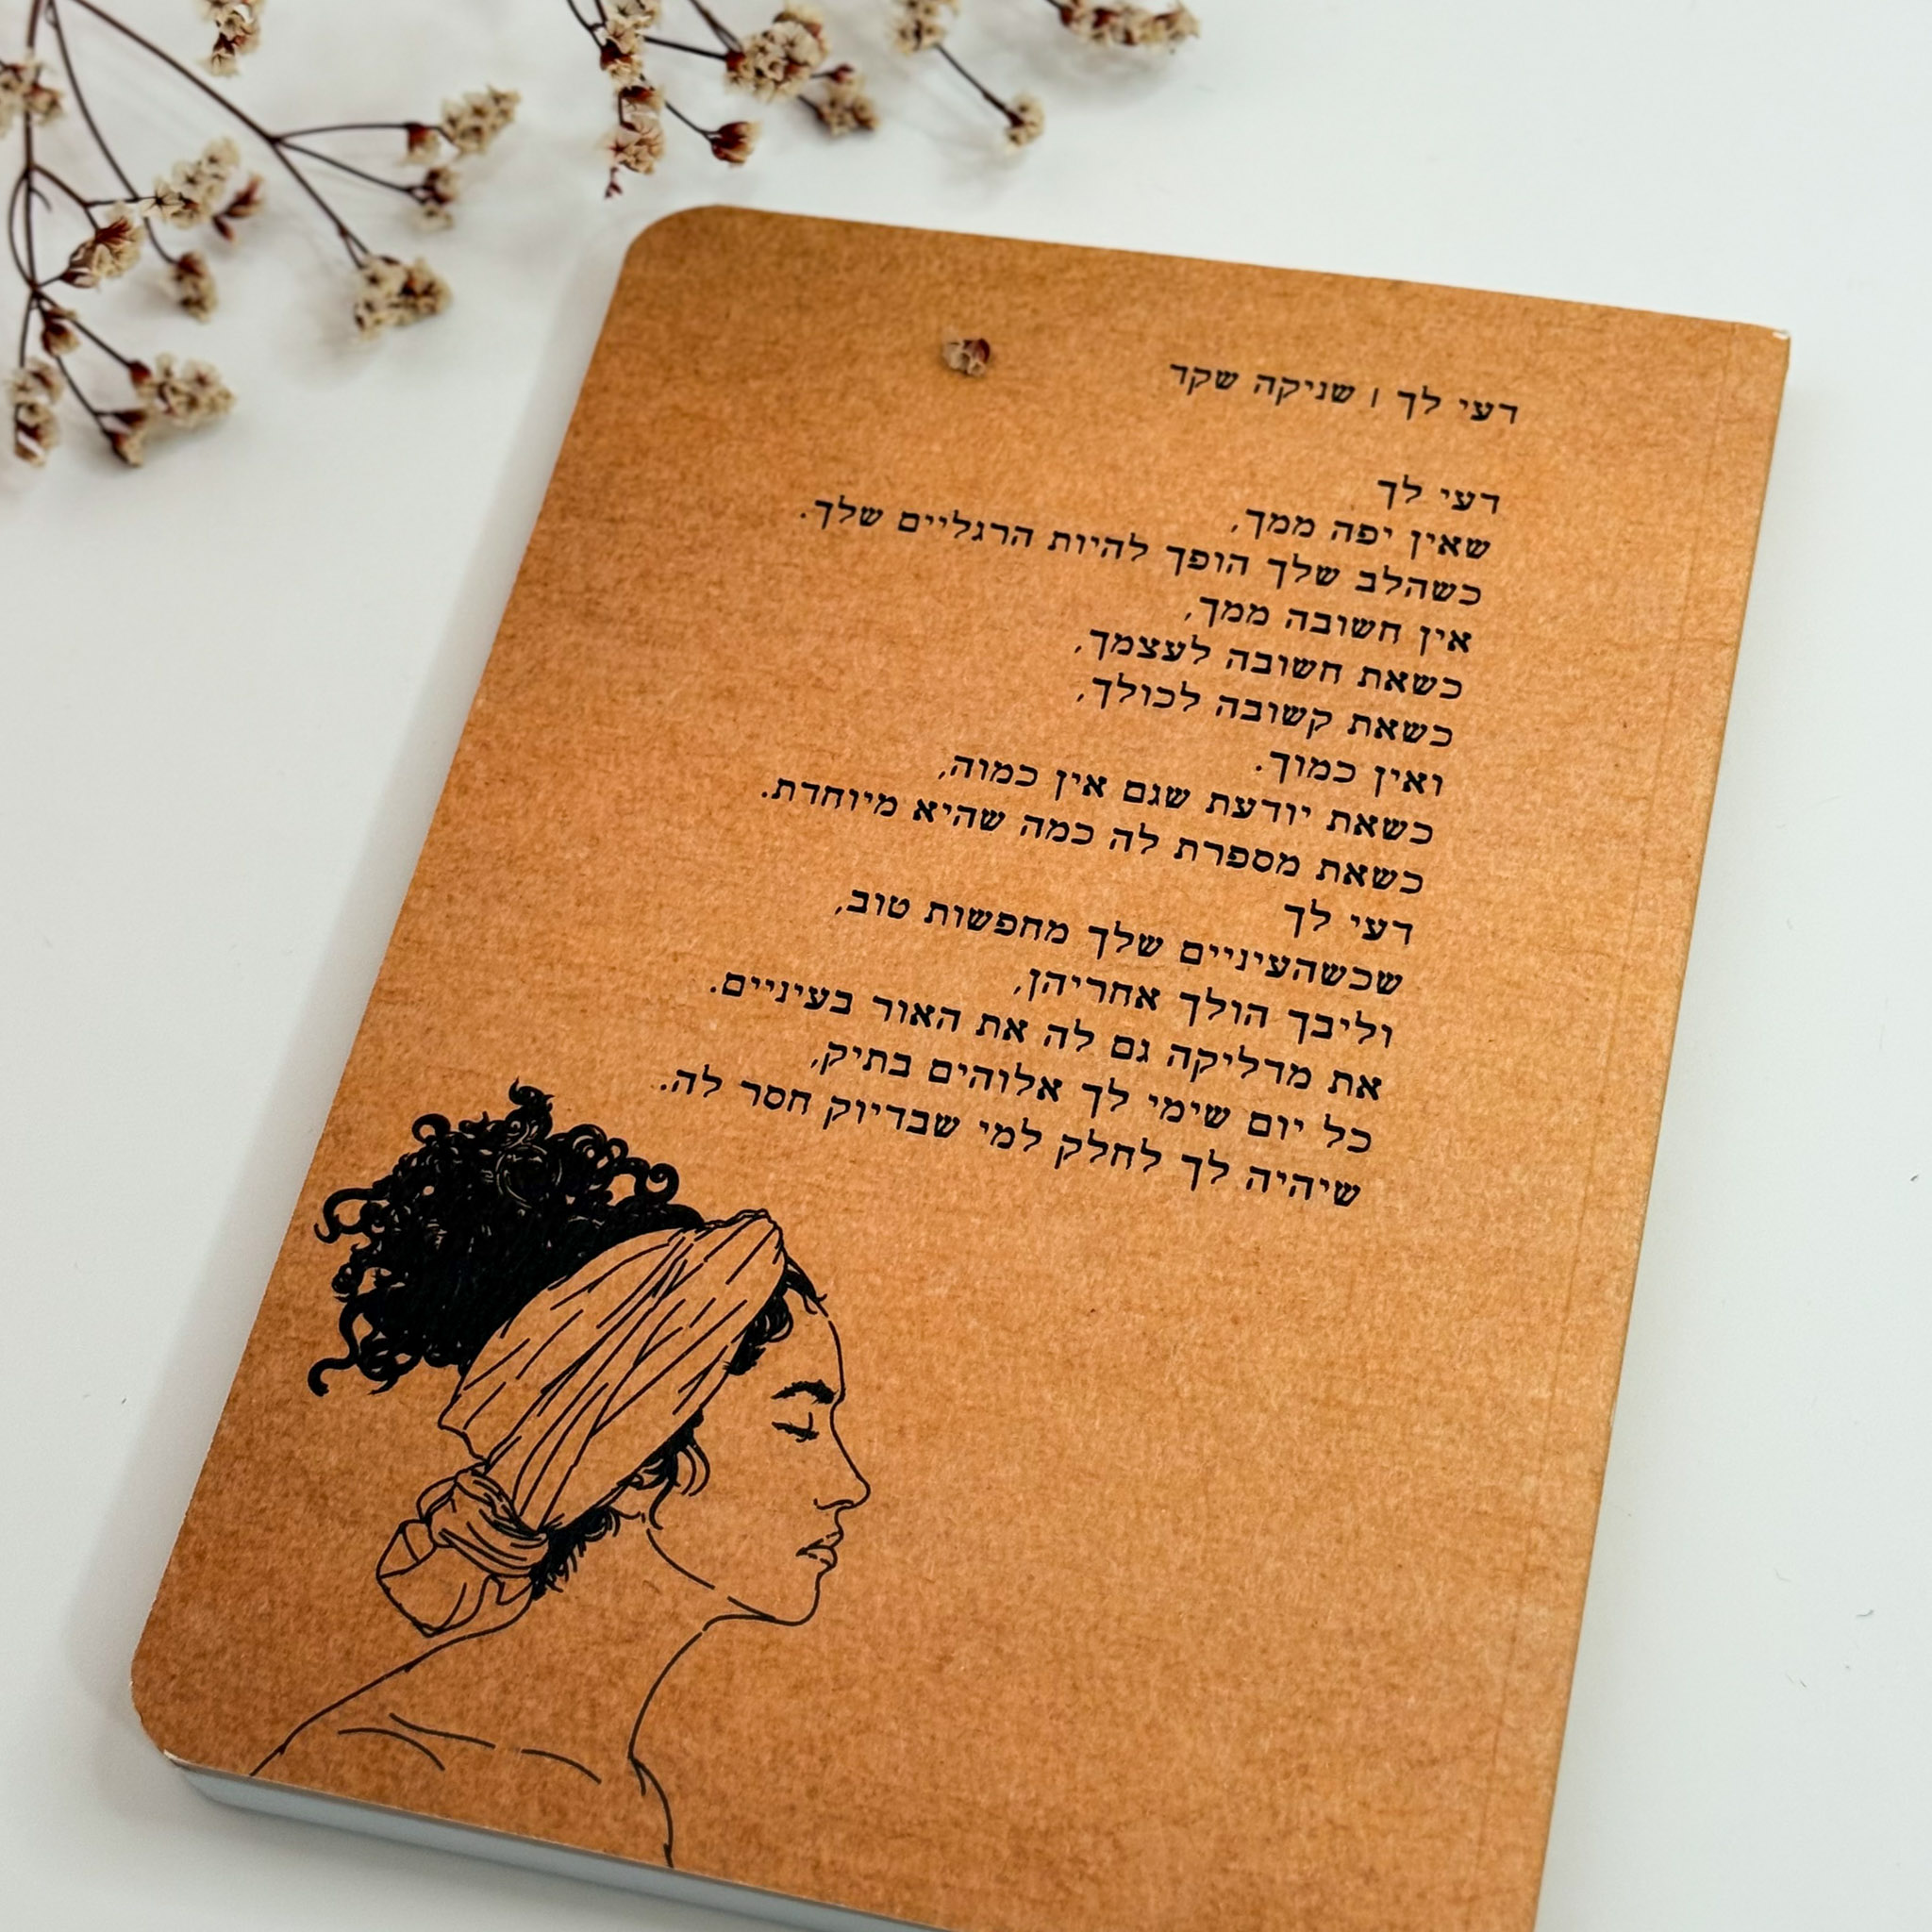 דעי לך | שניקה שקד
דעי לך
שאין יפה ממך,
כשהלב שלך הופך להיות הרגליים שלך.
אין חשובה ממך,
כשאת חשובה לעצמך,
כשאת קשובה לכולך,
ואין כמוך.
כשאת יודעת שגם אין כמוה,
כשאת מספרת לה כמה שהיא מיוחדת.
דעי לך
שכשהעיניים שלך מחפשות טוב,
וליבך הולך אחריהן,
את מדליקה גם לה את האור בעיניים.
כל יום שימי לך אלוהים בתיק,
שיהיה לך לחלק למי שבדיוק חסר לה.